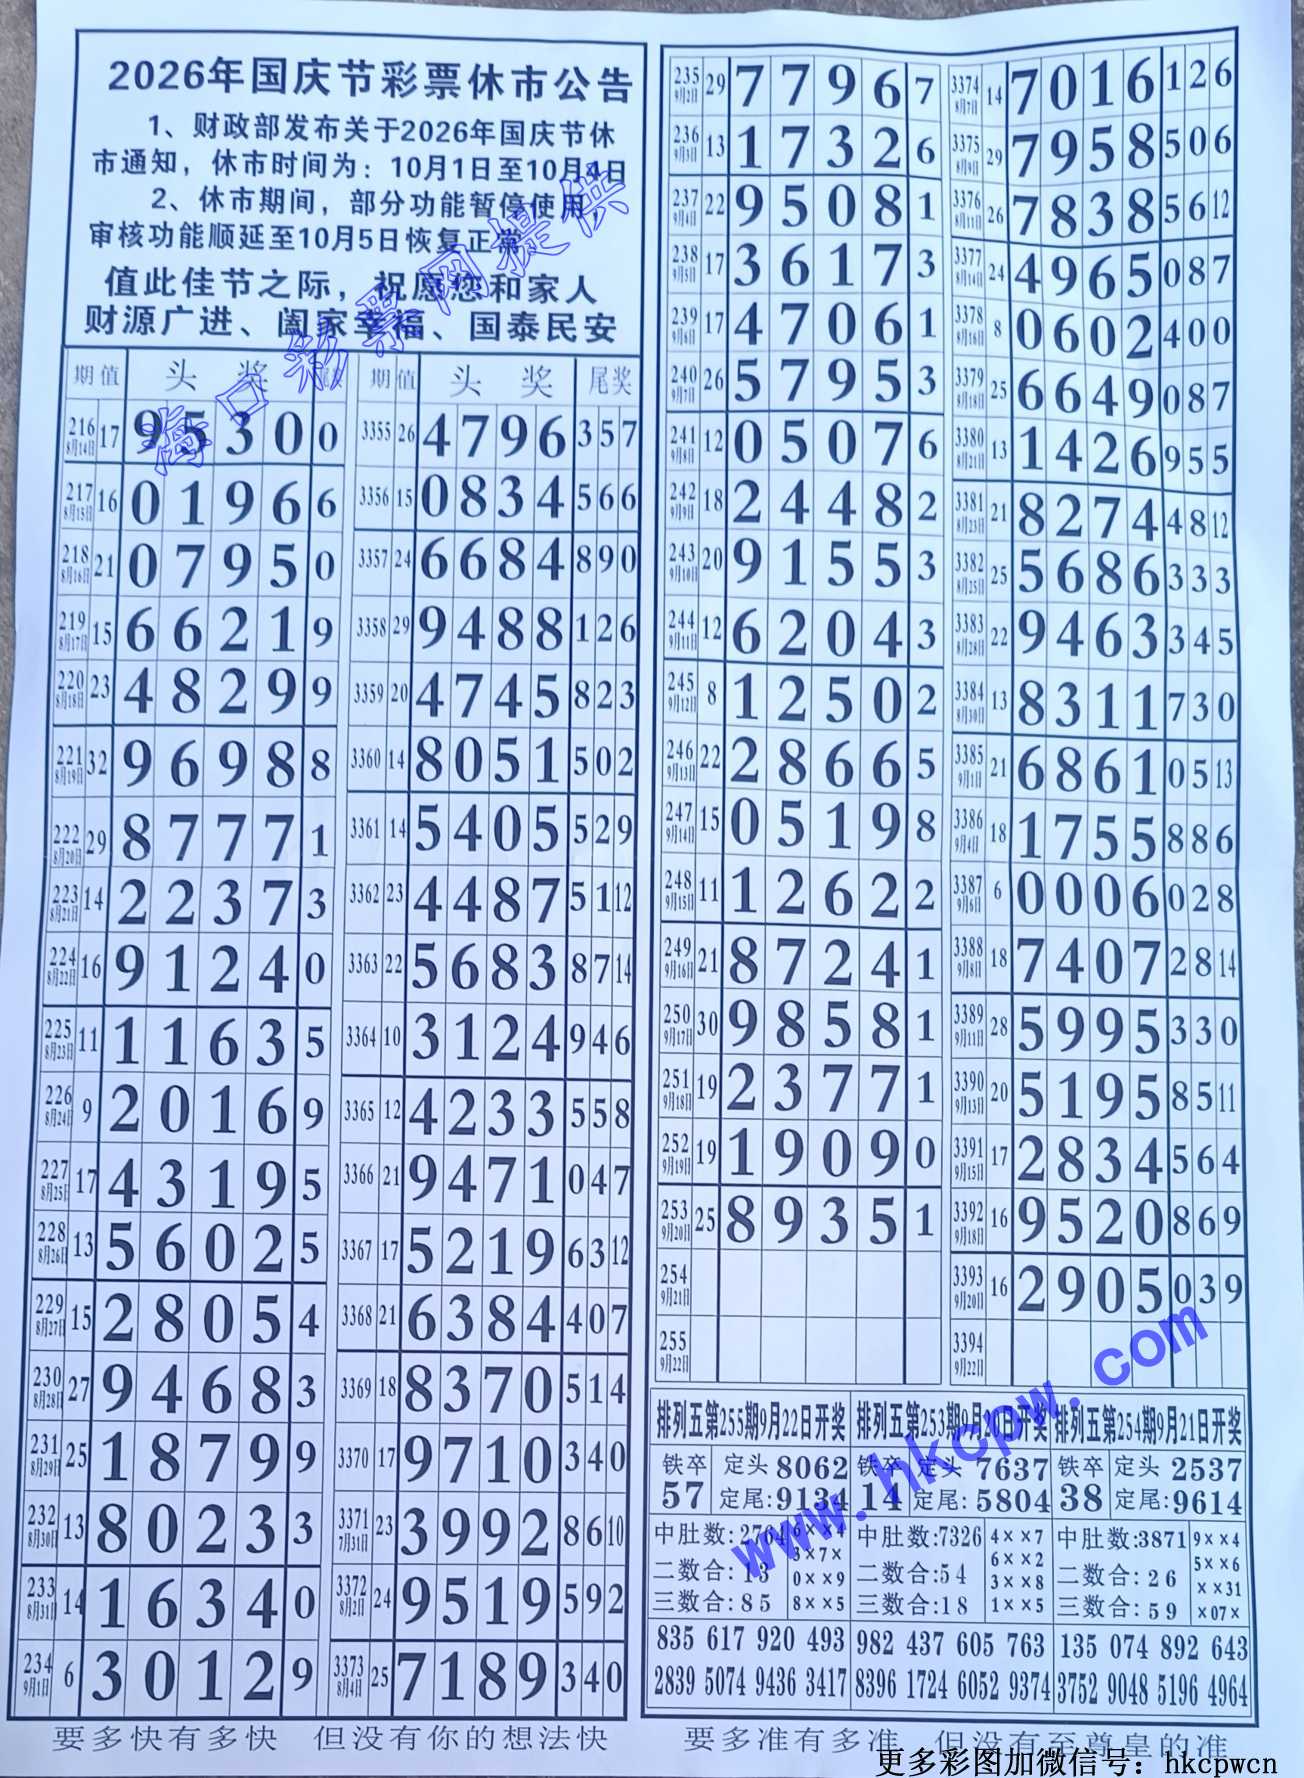 2026年国庆节彩票休市公告
1、财政部发布关于2026年国庆节休
市通知，休市时间为：10月1日至10月4日
2、休市期间，部分功能暂停使用，
审核功能顺延至10月5日恢复正常
值此佳节之际，祝愿您和家人
财源广进、阖家幸福、国泰民安
海口彩票网提供
期 值 头 奖
216 8月14日 17 9 5 3 0 0
217 8月15日 16 0 1 9 6 6
218 8月16日 21 0 7 9 5 0
219 8月17日 15 6 6 2 1 9
220 8月18日 23 4 8 2 9 9
221 8月19日 32 9 6 9 8 8
222 8月20日 29 8 7 7 7 1
223 8月21日 14 2 2 3 7 3
224 8月22日 16 9 1 2 4 0
225 8月23日 11 1 1 6 3 5
226 8月24日 9 2 0 1 6 9
227 8月25日 17 4 3 1 9 5
228 8月26日 13 5 6 0 2 5
229 8月27日 15 2 8 0 5 4
230 8月28日 27 9 4 6 8 3
231 8月29日 25 1 8 7 9 9
232 8月30日 13 8 0 2 3 3
233 8月31日 14 1 6 3 4 0
234 9月1日 6 3 0 1 2 9
期 值 头 奖 尾奖
3355 26 4 7 9 6 3 5 7
3356 15 0 8 3 4 5 6 6
3357 24 6 6 8 4 8 9 0
3358 29 9 4 8 8 1 2 6
3359 20 4 7 4 5 8 2 3
3360 14 8 0 5 1 5 0 2
3361 14 5 4 0 5 5 2 9
3362 23 4 4 8 7 5 1 12
3363 22 5 6 8 3 8 7 14
3364 10 3 1 2 4 9 4 6
3365 12 4 2 3 3 5 5 8
3366 21 9 4 7 1 0 4 7
3367 17 5 2 1 9 6 3 12
3368 21 6 3 8 4 4 0 7
3369 18 8 3 7 0 5 1 4
3370 17 9 7 1 0 3 4 0
3371 7月31日 23 3 9 9 2 8 6 10
3372 8月2日 24 9 5 1 9 5 9 2
3373 8月4日 25 7 1 8 9 3 4 0
要多快有多快 但没有你的想法快
235 9月2日 29 7 7 9 6 7
236 9月3日 13 1 7 3 2 6
237 9月4日 22 9 5 0 8 1
238 9月5日 17 3 6 1 7 3
239 9月6日 17 4 7 0 6 1
240 9月7日 26 5 7 9 5 3
241 9月8日 12 0 5 0 7 6
242 9月9日 18 2 4 4 8 2
243 9月10日 20 9 1 5 5 3
244 9月11日 12 6 2 0 4 3
245 9月12日 8 1 2 5 0 2
246 9月13日 22 2 8 6 6 5
247 9月14日 15 0 5 1 9 8
248 9月15日 11 1 2 6 2 2
249 9月16日 21 8 7 2 4 1
250 9月17日 30 9 8 5 8 1
251 9月18日 19 2 3 7 7 1
252 9月19日 19 1 9 0 9 0
253 9月20日 25 8 9 3 5 1
254 9月21日
255 9月22日
3374 8月7日 14 7 0 1 6 1 2 6
3375 8月9日 29 7 9 5 8 5 0 6
3376 8月11日 26 7 8 3 8 5 6 12
3377 8月14日 24 4 9 6 5 0 8 7
3378 8月16日 8 0 6 0 2 4 0 0
3379 8月18日 25 6 6 4 9 0 8 7
3380 8月21日 13 1 4 2 6 9 5 5
3381 8月23日 21 8 2 7 4 4 8 12
3382 8月25日 25 5 6 8 6 3 3 3
3383 8月28日 22 9 4 6 3 3 4 5
3384 8月30日 13 8 3 1 1 7 3 0
3385 9月1日 21 6 8 6 1 0 5 13
3386 9月4日 18 1 7 5 5 8 8 6
3387 9月6日 6 0 0 0 6 0 2 8
3388 9月8日 18 7 4 0 7 2 8 14
3389 9月11日 28 5 9 9 5 3 3 0
3390 9月13日 20 5 1 9 5 8 5 11
3391 9月15日 17 2 8 3 4 5 6 4
3392 9月18日 16 9 5 2 0 8 6 9
3393 9月20日 16 2 9 0 5 0 3 9
3394 9月22日
www.hkcpw.com
排列五第255期9月22日开奖
铁卒 57 定头 8062
定尾:9134
中肚数:2764 6××4
二数合:13 3×7×
0××9
三数合:85 8××5
835 617 920 493
2839 5074 9436 3417
排列五第253期9月20日开奖
铁卒 14 定头 7637
定尾:5804
中肚数:7326 4××7
6××2
二数合:54 3××8
三数合:18 1××5
982 437 605 763
8396 1724 6052 9374
排列五第254期9月21日开奖
铁卒 38 定头 2537
定尾:9614
中肚数:3871 9××4
5××6
二数合:26 ××31
三数合:59 ×07×
135 074 892 643
3752 9048 5196 4964
要多准有多准 但没有至尊皇的准
更多彩图加微信号：hkcpwcn